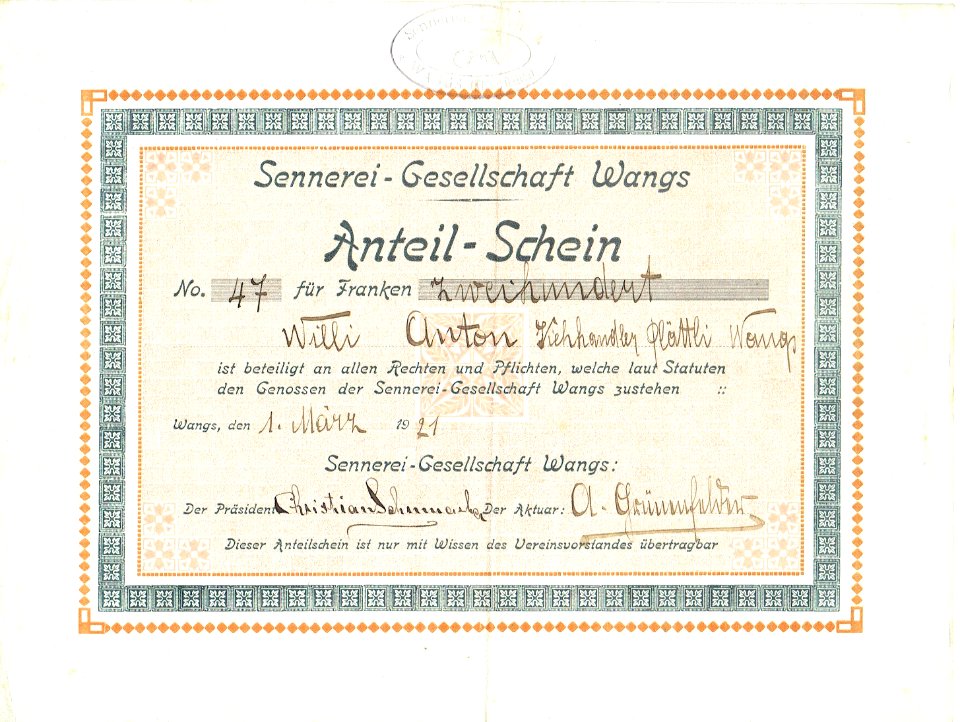 Sennerei-Gesellschaft Wangs
Anteil-Schein
No. 47 für Franken zweihundert
Willi Anton Viehhandler Plättli Wangs
ist beteiligt an allen Rechten und Pflichten, welche laut Statuten
den Genossen der Sennerei-Gesellschaft Wangs zustehen ::
Wangs, den 1. März 1921
Sennerei-Gesellschaft Wangs:
Der Präsident: Christian Der Aktuar: A. Grünenfelder
Dieser Anteilschein ist nur mit Wissen des Vereinsvorstandes übertragbar